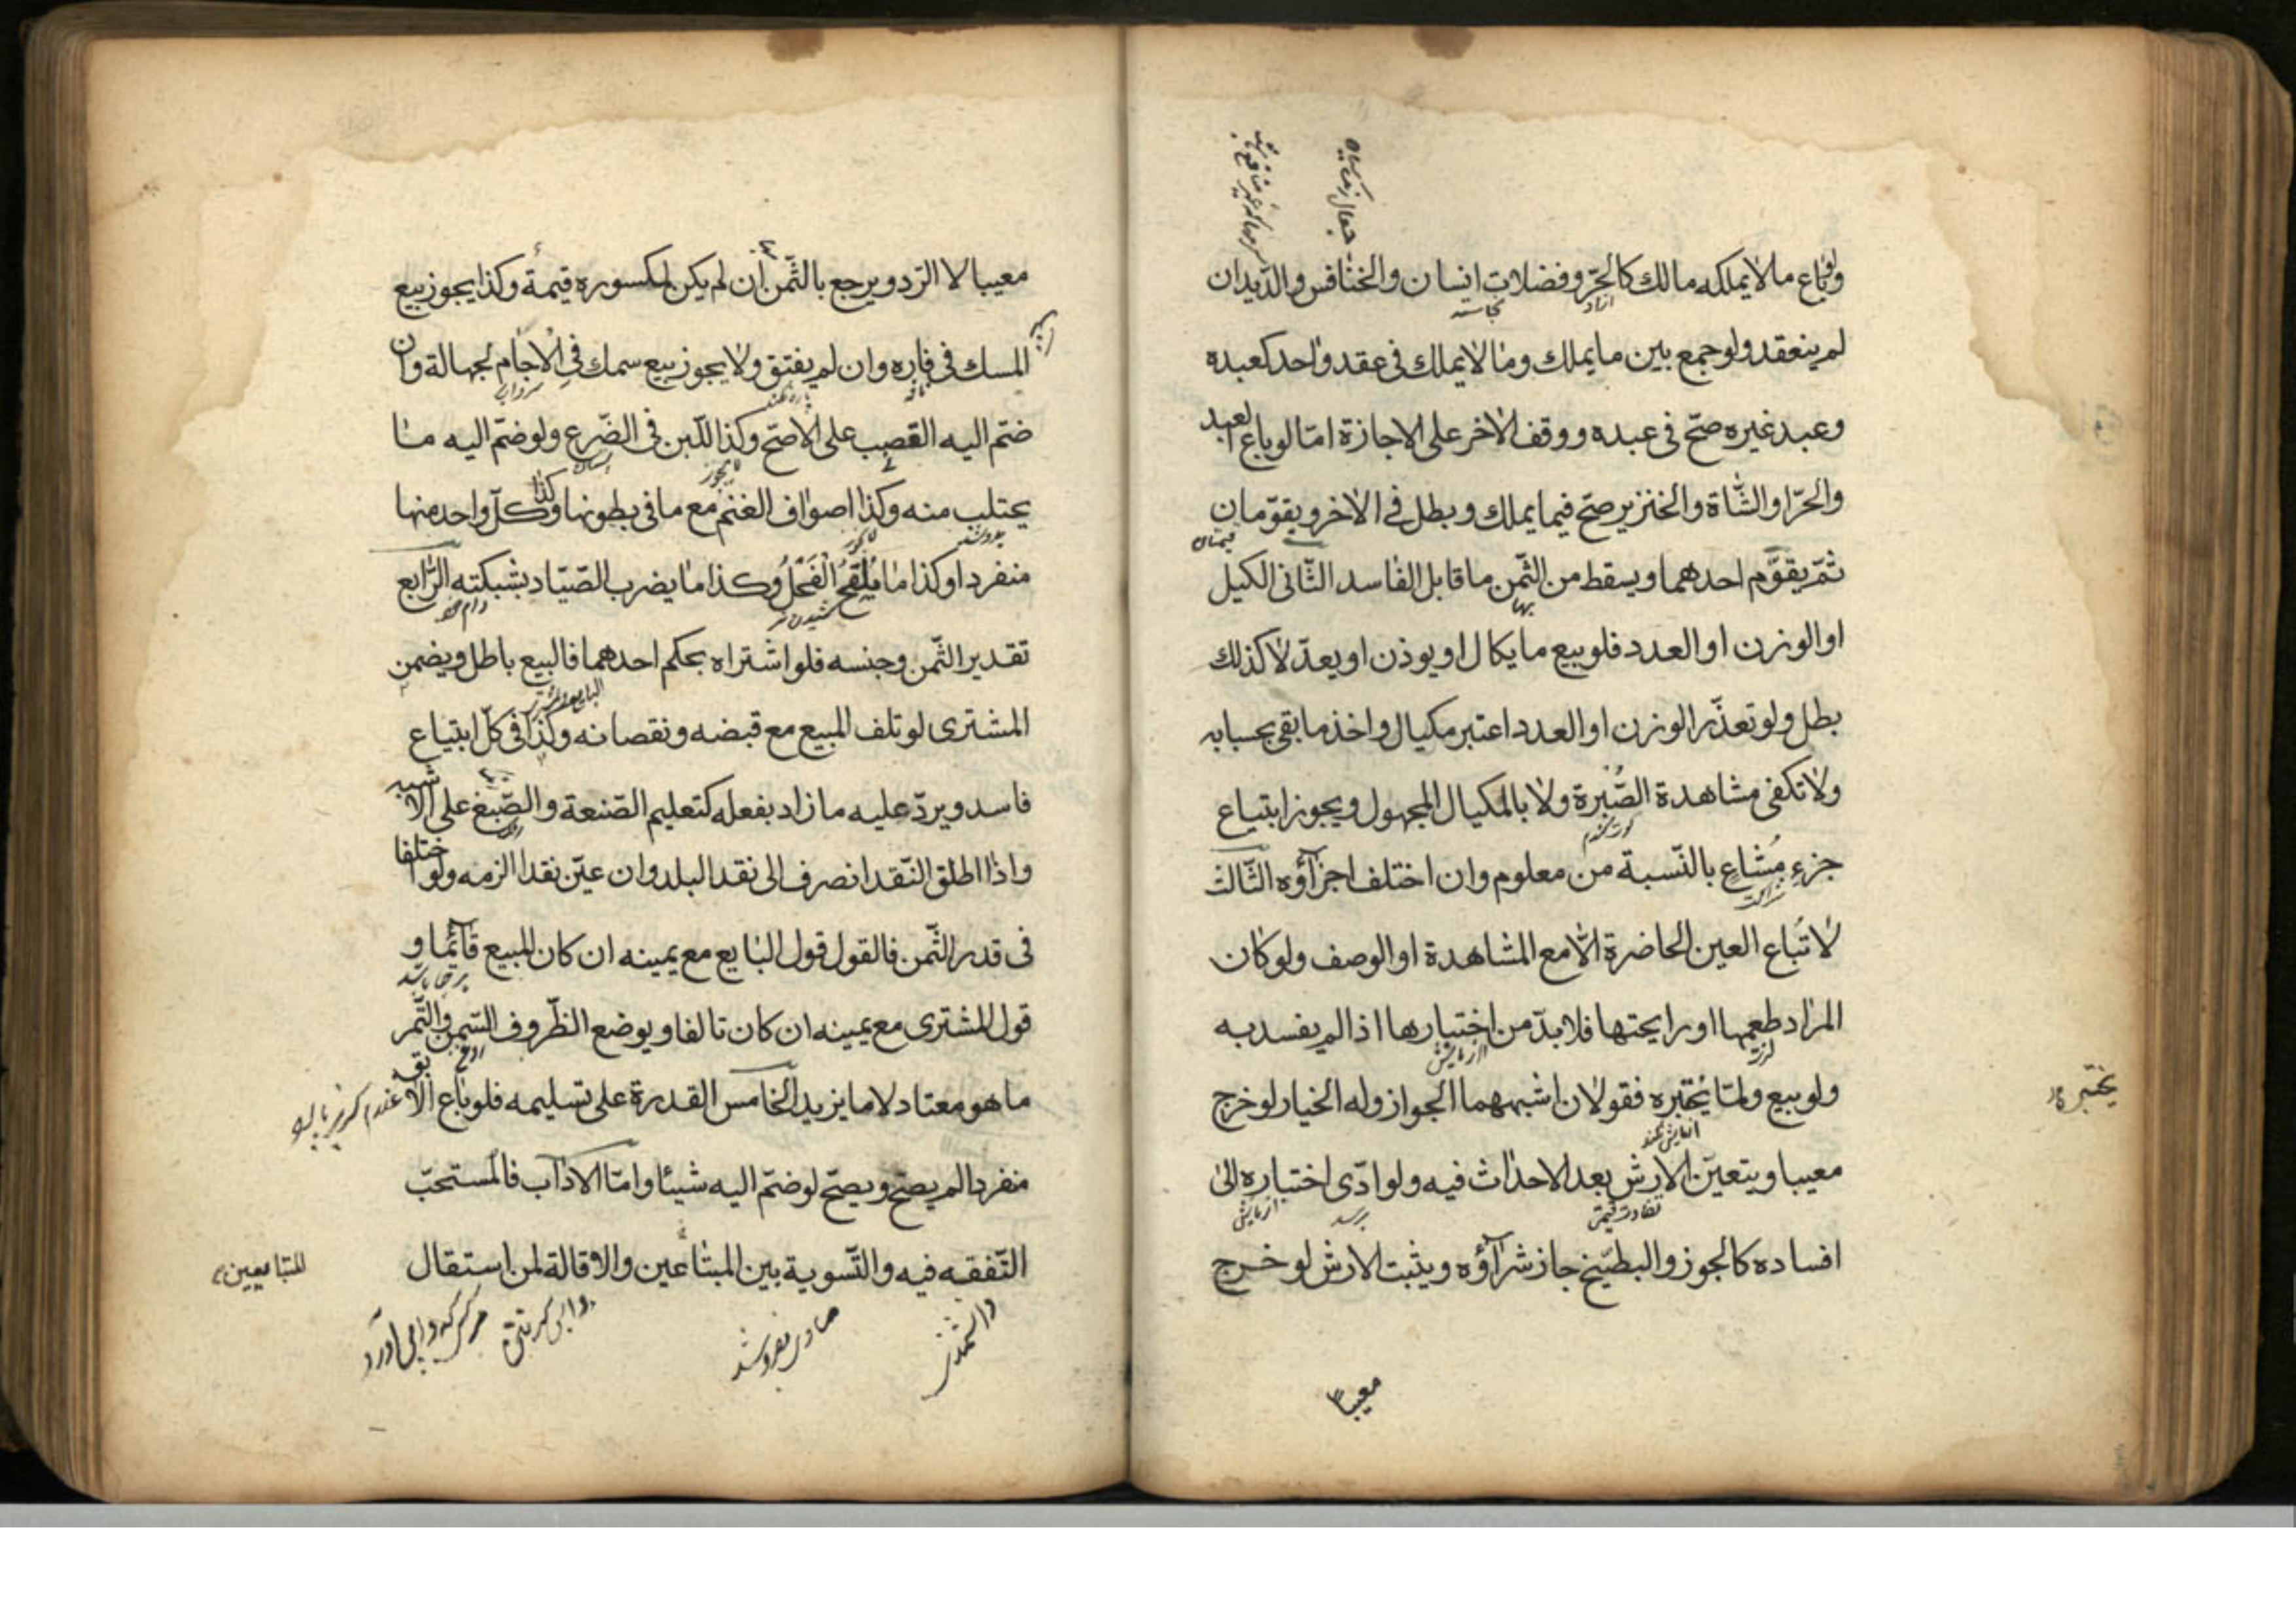 ولو باع ما لا يملكه مالك كالحرّ وفضلات انسان والخنافس والدّيدان
لم ينعقد ولو جمع بين ما يملك وما لا يملك فى عقد واحد كعبده
وعبد غيره صحّ فى عبده ووقف الاخر على الاجازة امّا لو باع العبد
والحرّ او الشّاة والخنزير صحّ فيما يملك وبطل فى الاخر ويقوّمان
ثمّ يقوّم احدهما ويسقط من الثّمن ما قابل الفاسد الثّانى الكيل
او الوزن او العدد فلو بيع ما يكال او يوذن او يعدّ لا كذلك
بطل ولو تعذّر الوزن او العدد اعتبر مكيال واخذ ما بقى بحسابه
ولا تكفى مشاهدة الصُّبرة ولا بالمكيال المجهول ويجوز ابتياع
جزءٍ مُشاعٍ بالنّسبة من معلوم وان اختلف اجزآؤه الثّالث
لا تُباع العين الحاضرة الّا مع المشاهدة او الوصف ولو كان
المراد طعمها او رايحتها فلا بدّ من اختبارها اذا لم يفسد به
ولو بيع ولمّا يختبره فقولان اشبههما الجواز وله الخيار لو خرج
يختبر
معيبا ويتعيّن الارش بعد الاحداث فيه ولو ادّى اختباره الى
افساده كالجوز والبطّيخ جاز شرآؤه ويثبت الارش لو خرج
معيبا
معيبا لا الرّد ويرجع بالثّمن أن لم يكن لمكسوره قيمة وكذا يجوز بيع
المسك فى فاره وان لم يفتق ولا يجوز بيع سمك فى الاجام لجهالة وان
ضمّ اليه القصب على الاصحّ وكذا اللّبن فى الضّرع ولو ضمّ اليه ما
يحتلب منه وكذا اصواف الغنم مع ما فى بطونها وكذا كلّ واحد منها
منفردا وكذا ما يُلْقِحُ الْفَحْلُ وكذا ما يضرب الصّيّاد بشبكته الرّابع
تقدير الثّمن وجنسه فلو اشتراه بحكم احدهما فالبيع باطل ويضمن
المشترى لو تلف المبيع مع قبضه ونقصانه وكذا فى كلّ ابتياع
فاسد ويردّ عليه ما زاد بفعله كتعليم الصّنعة والصّبغ على الاشبه
واذا اطلق النّقد انصرف الى نقد البلد وان عيّن نقدا لزمه ولو اختلفا
فى قدر الثّمن فالقول قول البايع مع يمينه ان كان المبيع قآئما و
قول المشترى مع يمينه ان كان تالفا ويوضع الظّروف السّمن والتّمر
ما هو معتاد لا ما يزيد الخامس القدرة على تسليمه فلو باع الابق
منفردا لم يصحّ ويصحّ لو ضمّ اليه شيئا وامّا الاداب فالمستحبّ
التّفقه فيه والتّسوية بين المبتاعين والاقالة لمن استقال
المتبايعين